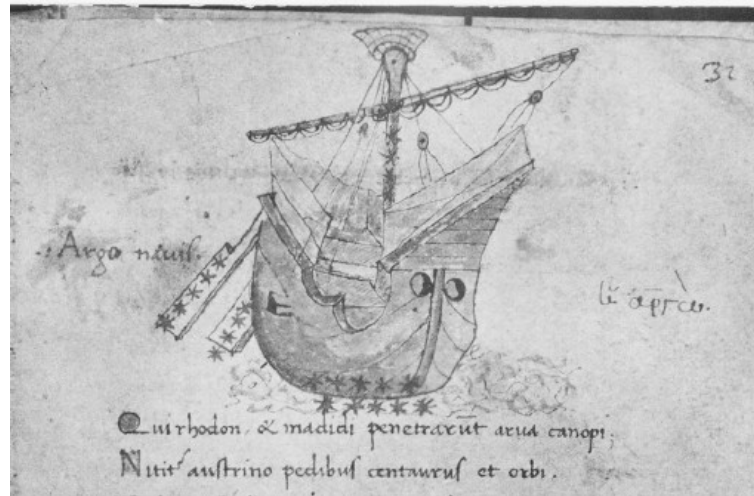 32
Argo navis.
Qui rhodon, & madidi penetrarūt arva canopi;
Nitit᷑ austrino pedibus centaurus et orbi.